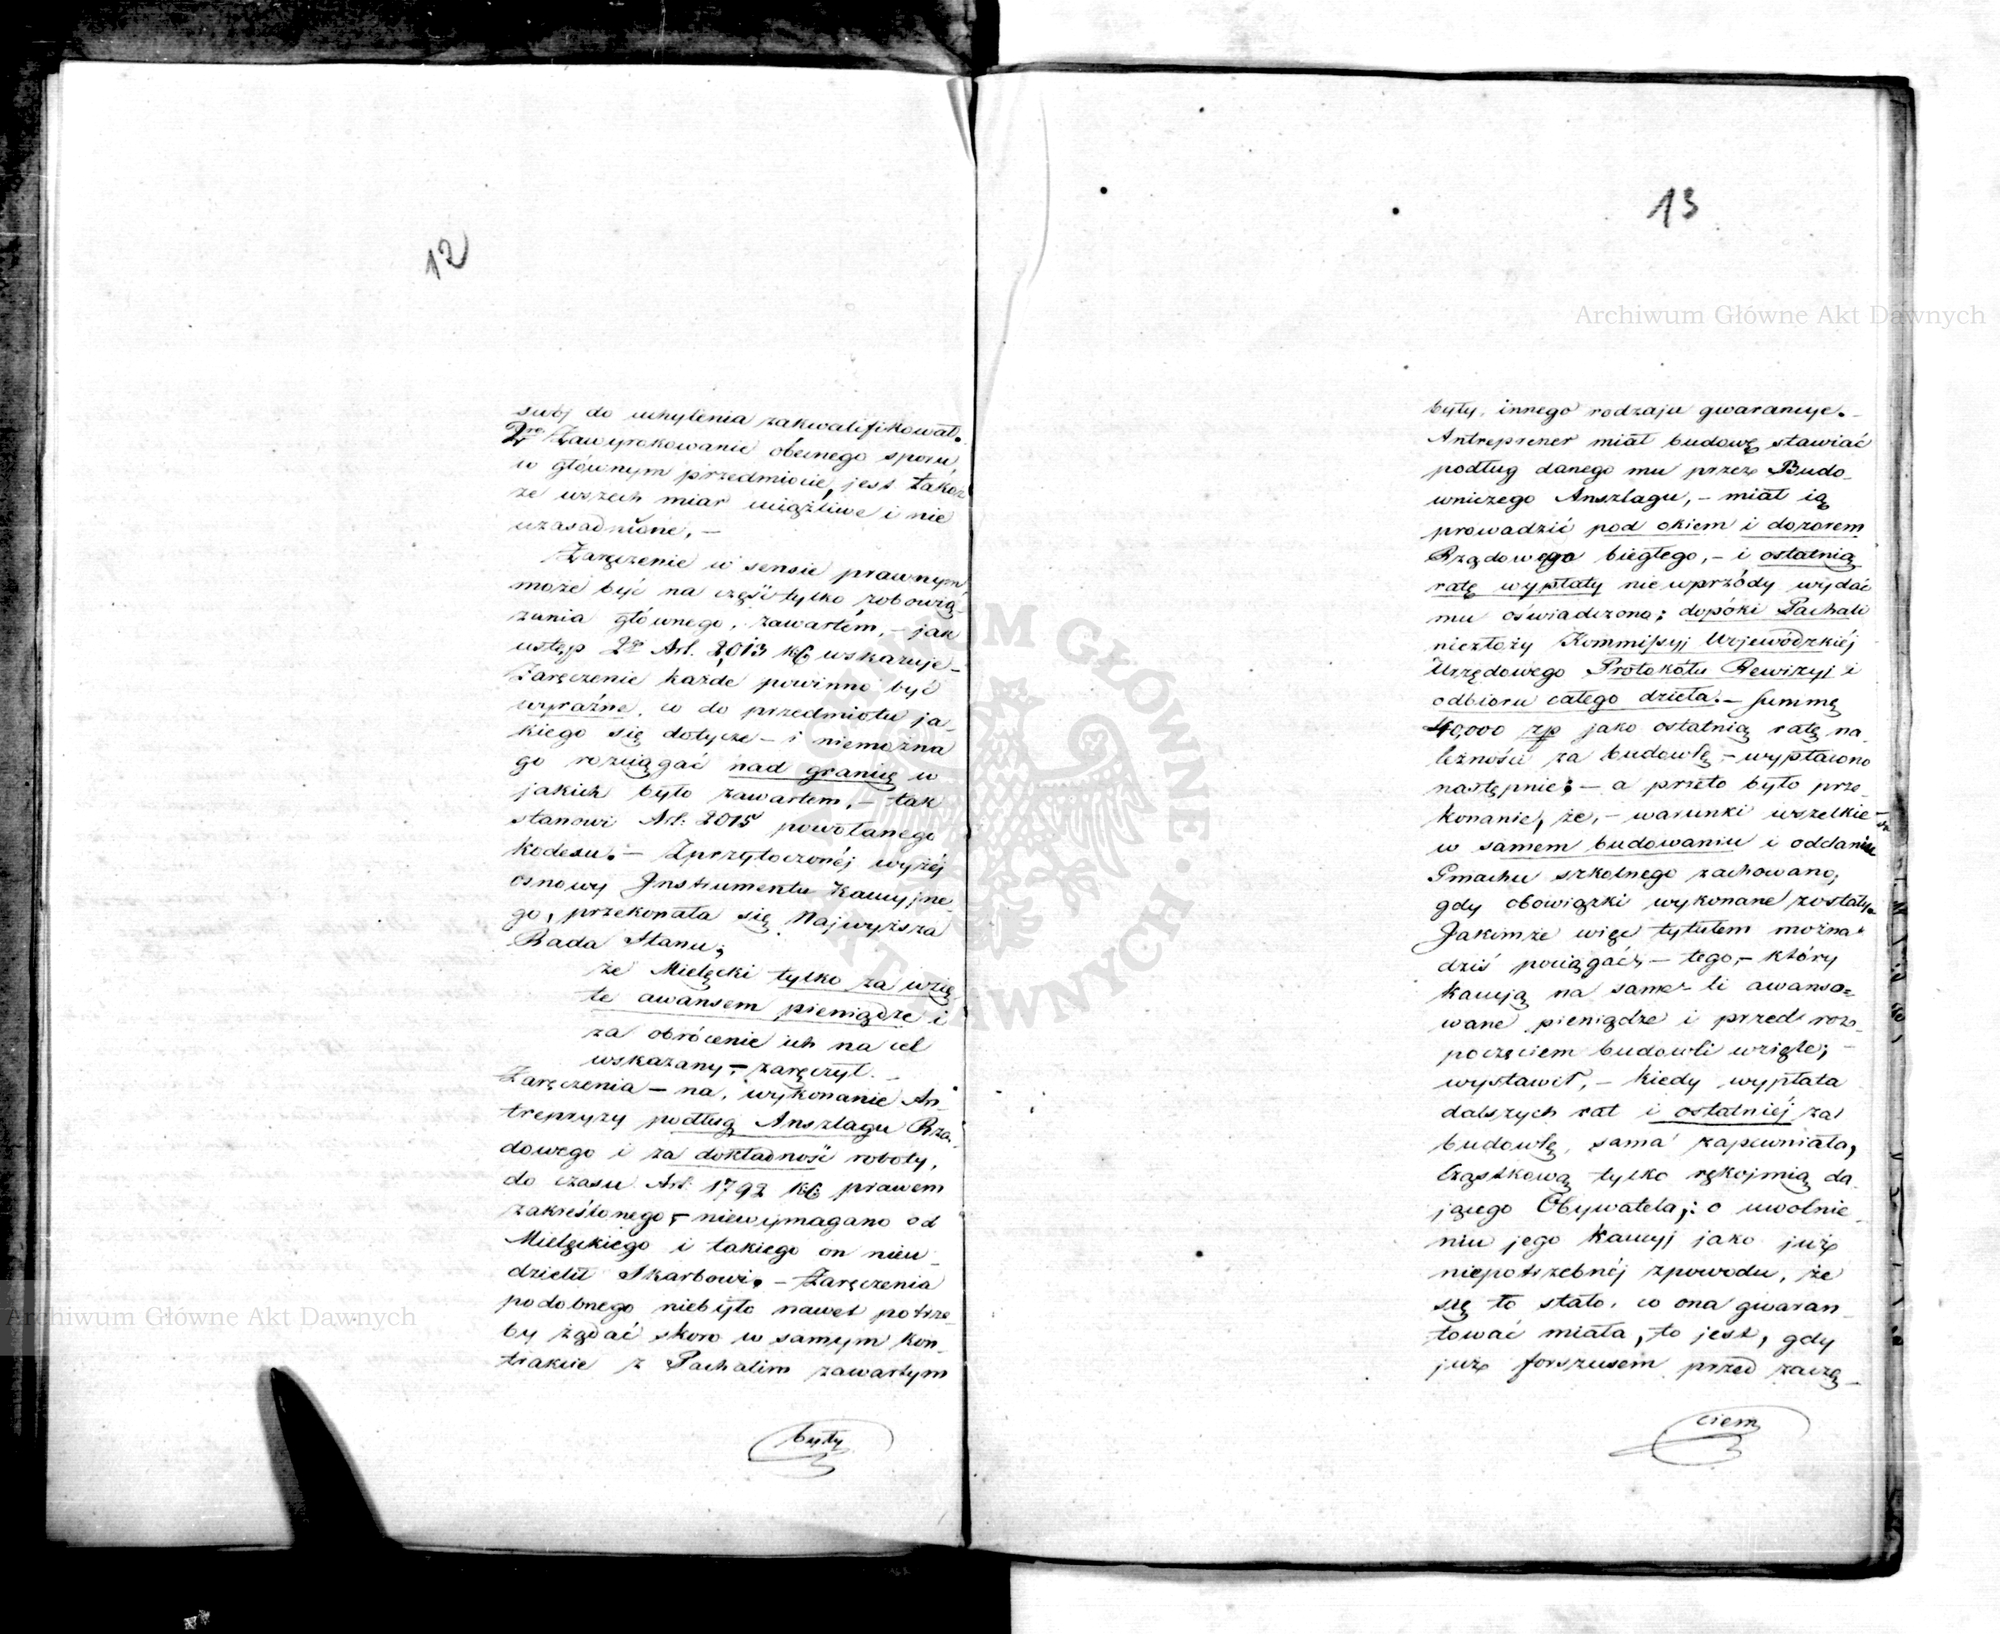 12
swój do uchylenia zakwalifikował.
2re Zawyrokowanie obecnego sporu
w głównym przedmiocie, jest także
ze wszech miar uciążliwe i nie
uzasadnione, –
Zaręczenie w sensie prawnym
może być na część tylko zobowią-
zania głównego, zawartém, – jak
ustęp 2gi Art. 2,013 KC wskazuje –
Zaręczenie każde powinno być
wyraźne, co do przedmiotu ja-
kiego się dotycze – i niemożna
go rozciągać nad granicę w
jakich było zawartem, – tak
stanowi Art: 2015 powołanego
Kodexu. – Zprzytoczonéj wyżéj
osnowy Instrumentu Kaucyjne-
go, przekonała się Najwyższa
Rada Stanu;
że Mielęcki tylko za wzię-
te awansem pieniądze i
za obrócenie ich na cel
wskazany, – zaręczył. –
Zaręczenia – na, wykonanie An-
trepryzy podług Anszlagu Rzą-
dowego i za dokładność roboty,
do czasu Art. 1792 KC prawem
zakreślonego, – niewymagano od
Mielęckiego i takiego on nieu-
dzielił Skarbowi. – Zaręczenia
podobnego niebyło nawet potrze-
by żądać skoro w samym kon-
trakcie z Pachalim zawartym
były
13
były, innego rodzaju gwarancye. –
Antreprener miał budowę stawiać
podług danego mu przez Budo-
wniczego Anszlagu, – miał ią
prowadzić pod okiem i dozorem
Rządowego biegłego, – i ostatnią
ratę wypłaty niewprzódy wydać
mu oświadczono; dopóki Pachali
niezłoży Kommissyj Wojewódzkiéj
Urzędowego Protokółu Rewizyj i
odbioru całego dzieła. – Summę
40,000 zp jako ostatnią ratę na-
leżności za budowlę – wypłacono
następnie; – a przeto było prze-
konanie, że, – warunki wszelkie –
w samem budowaniu i oddaniu
Gmachu szkolnego zachowano,
gdy obowiązki wykonane zostały.
Jakimże więc tytułem można
dziś pociągać, – tego, – który
kaucją na same li awanso-
wane pieniądze i przed roz-
poczęciem budowli wzięte; –
wystawił, – kiedy wypłata
dalszych rat i ostatniéj za
budowlę, sama zapewniała,
Cząstkową tylko rękojmią da-
jącego Obywatela; o uwolnie-
niu jego Kaucyj jako już
niepotrzebnéj zpowodu, że
się to stało, co ona gwaran-
tować miała, to jest, gdy
już forszusem przed zaczę-
ciem
Archiwum Główne Akt Dawnych
Archiwum Główne Akt Dawnych